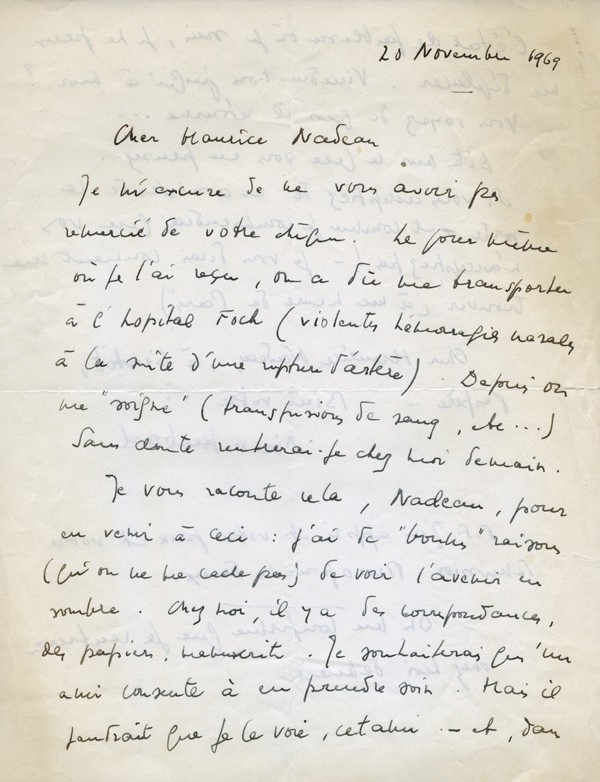 20 Novembre 1969
Cher Maurice Nadeau
Je m'excuse de ne vous avoir pas
remercié de votre chèque. Le jour même
où je l'ai reçu, on a dû me transporter
à l'hôpital Foch (violentes hémorragies nasales
à la suite d'une rupture d'artère). Depuis on
me "soigne" (transfusions de sang, etc...)
Sans doute rentrerai-je chez moi demain.
Je vous raconte cela, Nadeau, pour
en venir à ceci : j'ai de "bonnes" raisons
(qu'on ne me cache pas) de voir l'avenir en
sombre. Chez moi, il y a des correspondances,
des papiers, manuscrits. Je souhaiterais qu'un
ami consente à en prendre soin. Mais il
faudrait que je le voie, cet ami - et, dans